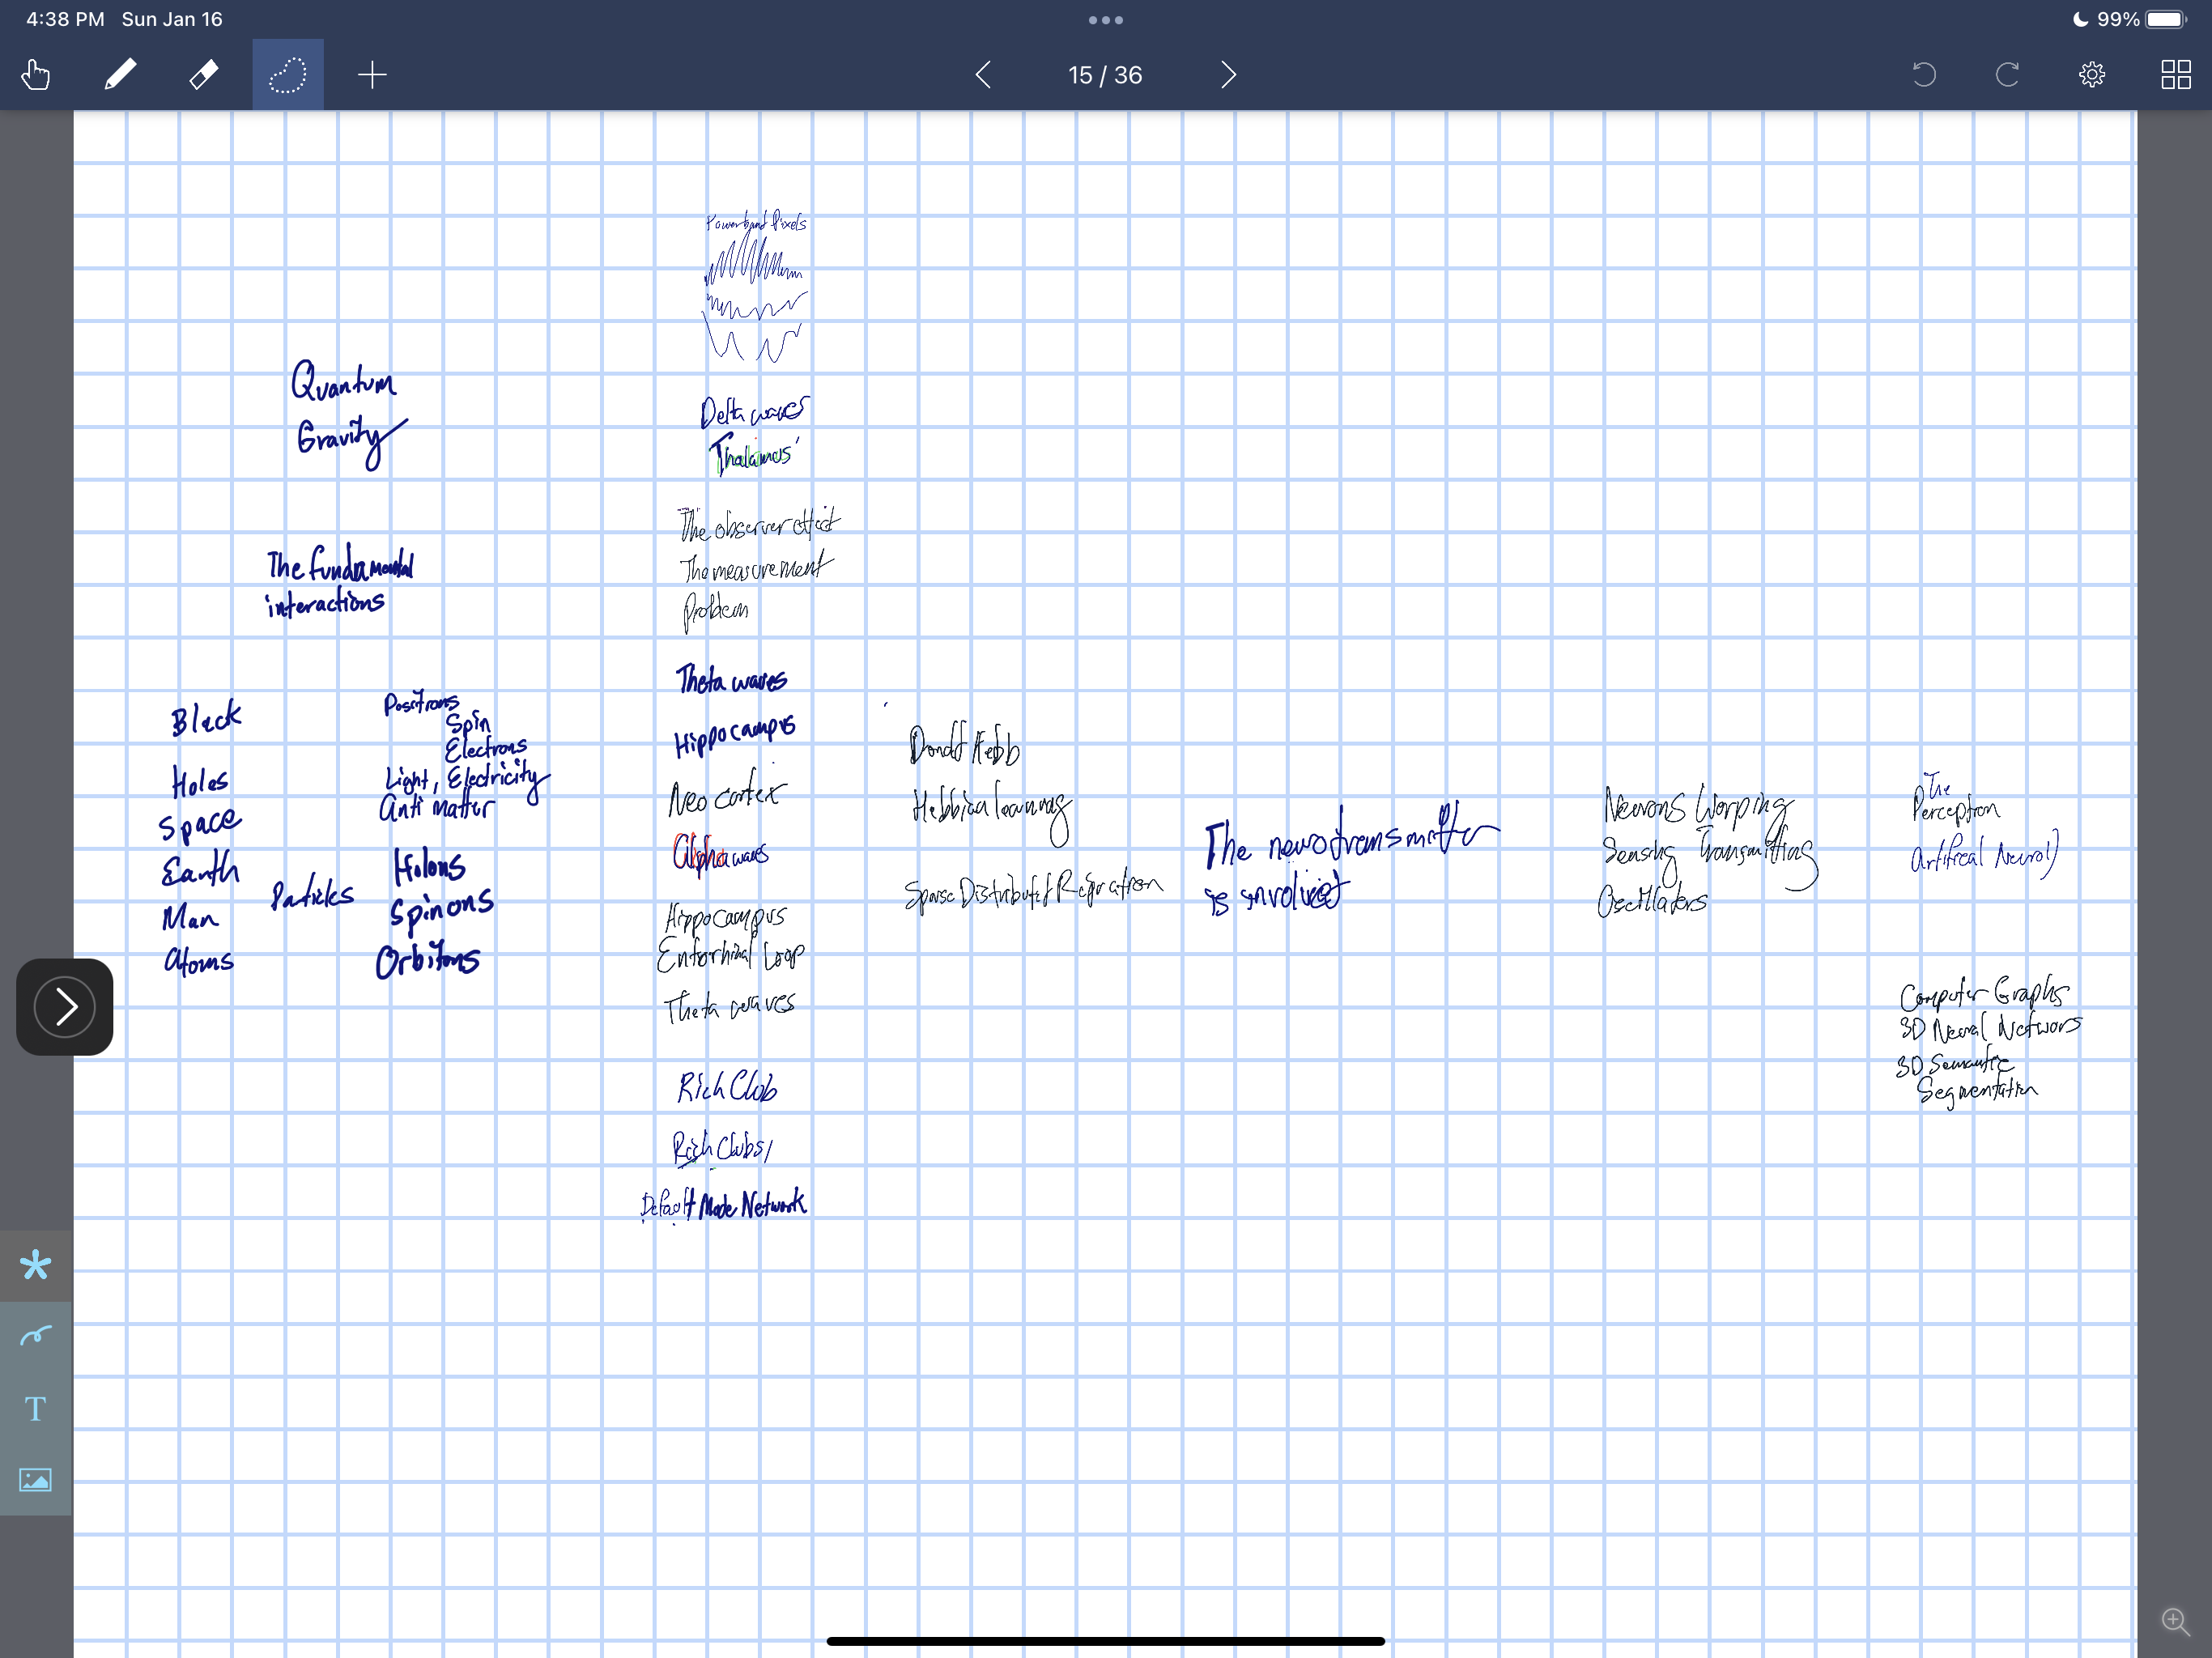 4:38 PM Sun Jan 16
99%
15 / 36
Powerband Pixels
Quantum
Gravity
The fundamental
interactions
Black
Holes
Space
Earth
Man
Atoms
Particles
Positrons
Spin
Electrons
Light, Electricity
Anti matter
Holons
Spinons
Orbitons
Delta waves
Thalamus
The observer effect
The measurement
Problem
Theta waves
Hippocampus
Neo cortex
Alpha waves
Hippocampus
Entorhinal Loop
Theta waves
Rich Club
Rich Clubs
Default Mode Network
Donald Hebb
Hebbian learning
Sparse Distributed
The neurotransmitter
is involved
Neurons
Sensing Transmitting
Oscillators
The
Perception
Neural
Computer Graphs
3D Neural Networs
3D Semantic
Segmentation
T